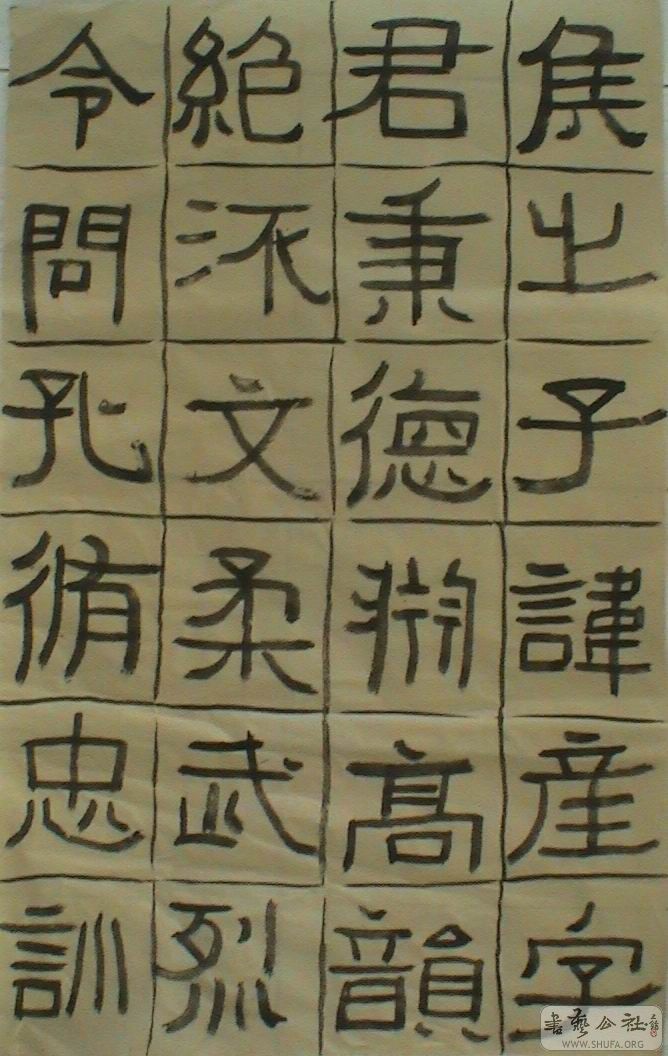 侯之子諱産字
君秉德淵髙韻
絕文柔武烈
令問孔脩忠訓
書藝公社
WWW.SHUFA.ORG